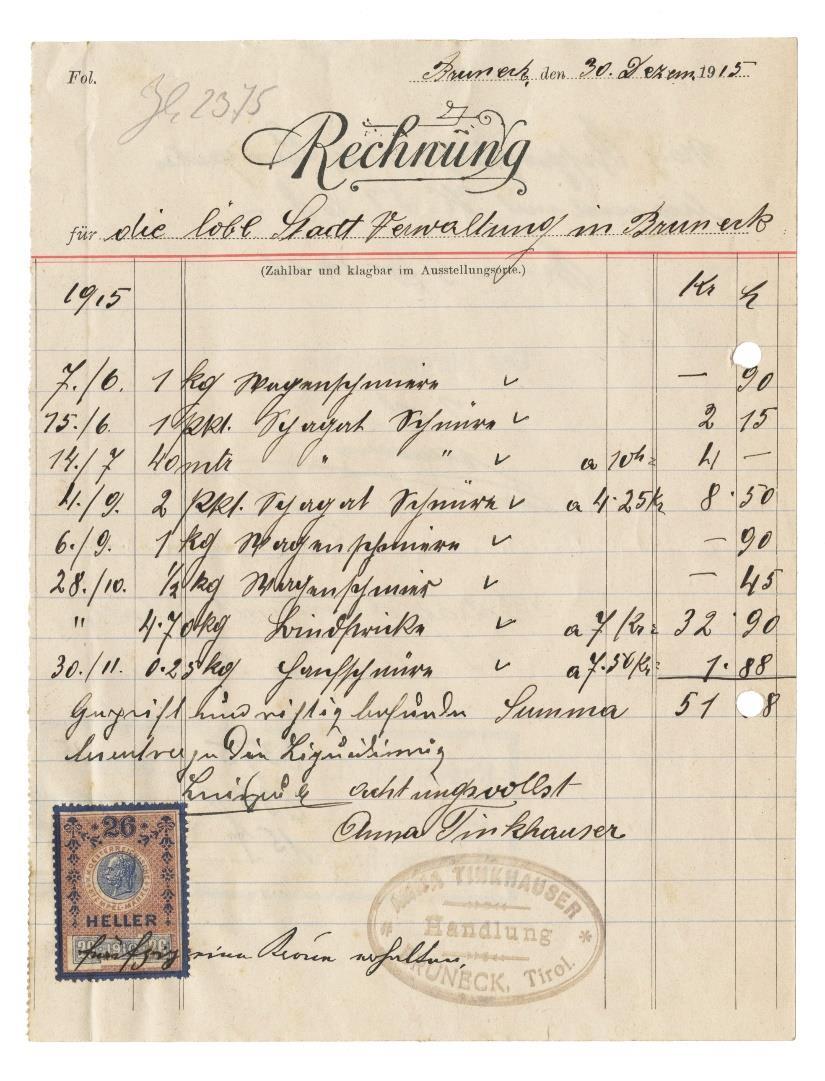 Fol.
Bruneck, den 30. Dezem. 1915
Zl. 2375
Rechnung
für die löbl Stadt Verwaltung in Bruneck
(Zahlbar und klagbar im Ausstellungsorte.)
1915 Kr h
7./6. 1 kg Wagenschmiere ✓ — 90
15./6. 1 Pkt. Spagat Schnüre ✓ 2 15
14./7 40 mtr " " ✓ a 10h= 4 —
4./9. 2 Pkt. Spagat Schnüre ✓ a 4·25 Kr 8·50
6./9. 1 kg Wagenschmiere ✓ — 90
28./10. 1/2 kg Wagenschmier ✓ — 45
" 4·70 kg Bindstricke ✓ a 7 Kr= 32·90
30./11. 0·25 kg Hanfschnüre ✓ a 7·50 Kr= 1·88
Geprüft und richtig befunden Summa 51 8
die Liquidierung
achtungsvollst
Anna Tinkhauser
26
HELLER
ANNA TINKHAUSER
Handlung
BRUNECK, Tirol.
fünfzig eine Krone erhalten.